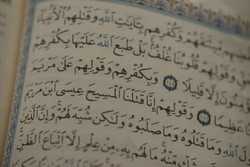 مِيثَـٰقَهُمْ وَكُفْرِهِم بِـَٔايَـٰتِ ٱللَّهِ وَقَتْلِهِمُ ٱلْأَنۢبِيَآءَ
وَقَوْلِهِمْ قُلُوبُنَا غُلْفٌۢ بَلْ طَبَعَ ٱللَّهُ عَلَيْهَا بِكُفْرِهِمْ
إِلَّا قَلِيلًا ۝ وَبِكُفْرِهِمْ وَقَوْلِهِمْ عَلَىٰ مَرْيَمَ
۝ وَقَوْلِهِمْ إِنَّا قَتَلْنَا ٱلْمَسِيحَ عِيسَى ٱبْنَ مَرْيَمَ
ٱللَّهِ وَمَا قَتَلُوهُ وَمَا صَلَبُوهُ وَلَـٰكِن شُبِّهَ لَهُمْ وَإِنَّ ٱلَّذِينَ
مِّنْهُ مَا لَهُم بِهِۦ مِنْ عِلْمٍ إِلَّا ٱتِّبَاعَ ٱلظَّنِّ